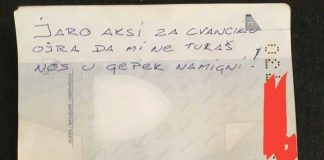 JARO AKSI ZA CVANCIKU
OJRA DA MI NE TURAŠ
NOS U GEPEK NAMIGNI!